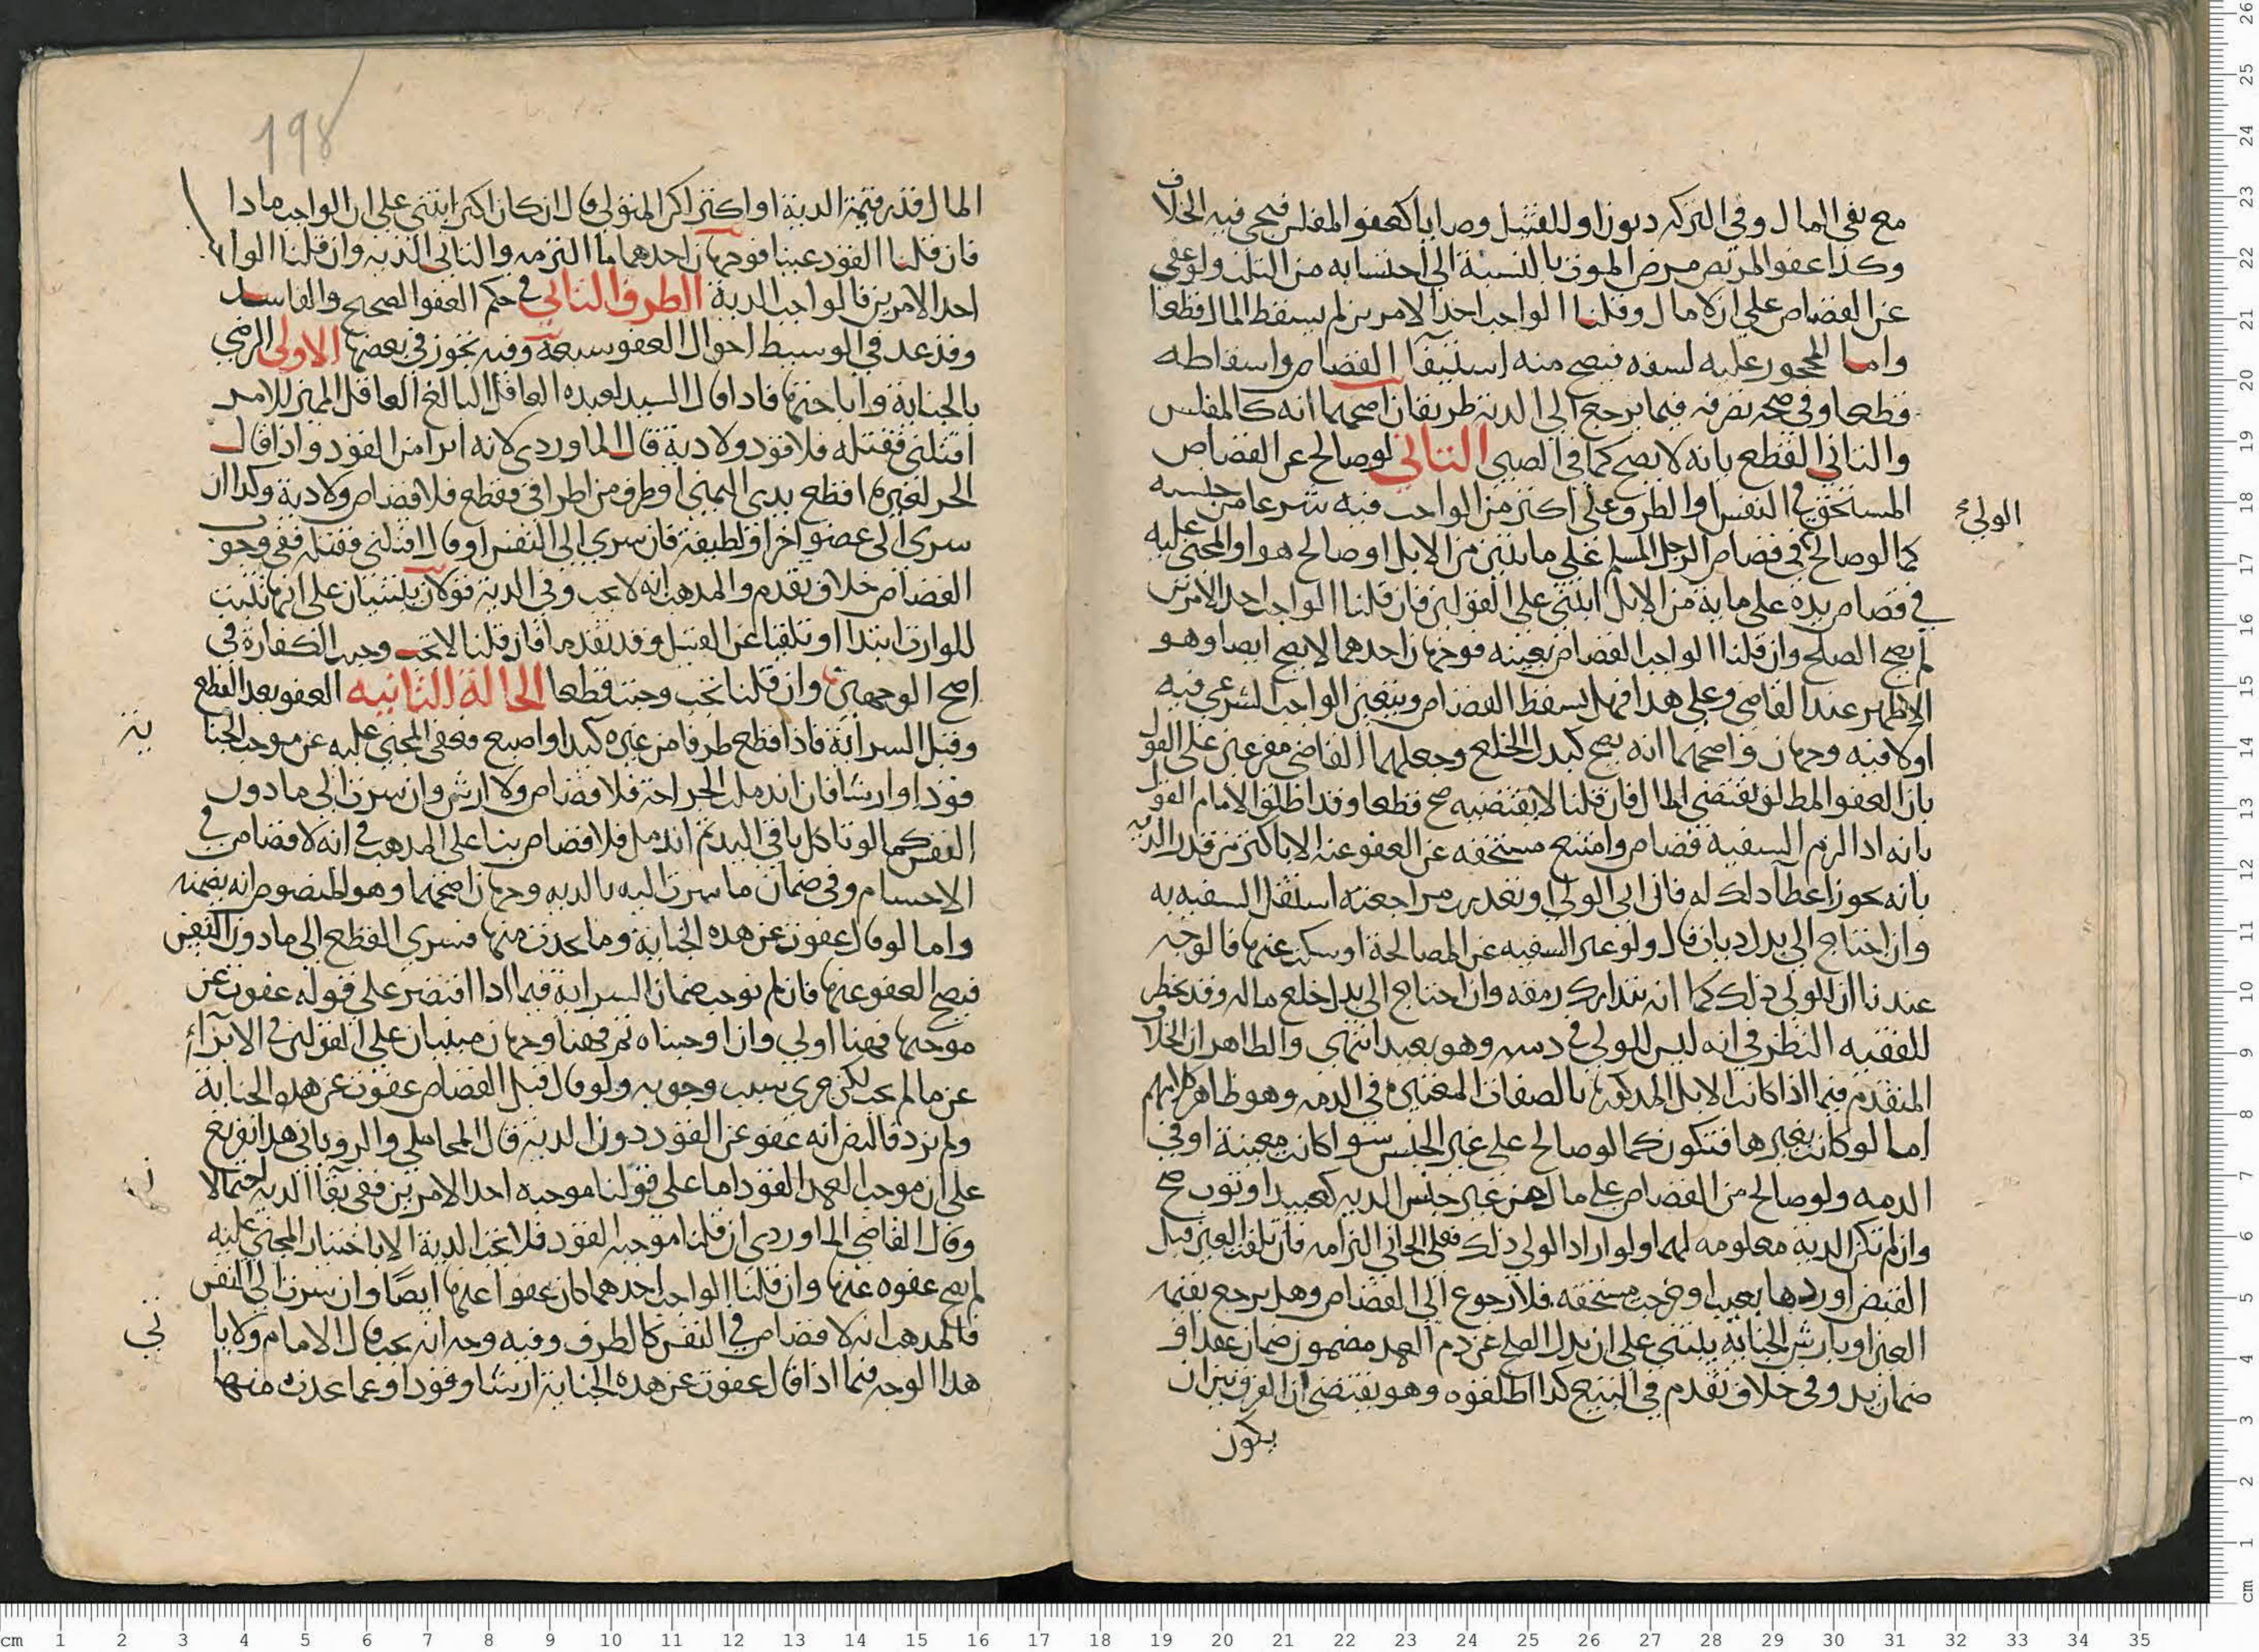 مع نفي المال وفي التركه ديون او للقتيل وصايا كعفو المفلس فيجي فيه الخلاف
وكذا عفو المريض مرض الموت بالنسبة الى احتسابه من الثلث ولو عفى
عن القصاص على ان لا مال وقلنا الواجب احد الامرين لم يسقط المال قطعا
واما المحجور عليه لسفه فيصح منه استيفآ القصاص واسقاطه
قطعا وفي صحة تصرفه فيما يرجع الى الدية طريقان اصحهما انه كالمفلس
والثاني القطع بانه لا يصح كما في الصبي الثاني لو صالح عن القصاص
المستحق في النفس او الطرف على اكثر من الواجب فيه شرعا من جنسه
الولي
كما لو صالح في قصاص الرجل المسلم على مايتين من الابل او صالح هو او المجني عليه
في قصاص يده على ماية من الابل ابتنى على القولين فان قلنا الواجب احد الامرين
لم يصح الصلح وان قلنا الواجب القصاص بعينه فوجهان احدهما لا يصح ايضا وهو
الاظهر عند القاضي وعلى هذا فهل يسقط القصاص ويتعين الواجب الشرعي فيه
اولا فيه وجهان واصحهما انه يصح كبدل الخلع وجعلهما القاضي مفرعين على القول
بان العفو المطلق يقتضي المال فان قلنا لا يقتضيه صح قطعا وقد اطلق الامام القول
بانه اذا لزم السفيه قصاص وامتنع مستحقه عن العفو عنه الا باكثر من قدر الدية
بانه يجوز اعطآ ذلك له فان ابى الولي او تعذرت مراجعته استقل السفيه به
وان احتاج الى بدل ديات قال ولو عبر السفيه عن المصالحة او سكت عنها فالوجه
عندنا ان للولي ذلك كما انه يتدارك رمقه وان احتاج الى بدل خلع ماله وقد يخطر
للفقيه النظر في انه ليس للولي في دمه وهو بعيد انتهى والظاهر ان الخلاف
المتقدم فيما اذا كانت الابل المذكورة بالصفات المعتبرة في الدية وهو ظاهر كلامهم
اما لو كانت بغيرها فتكون كما لو صالح على غير الجنس سوا كانت معينة او في
الذمه ولو صالح من القصاص على مال من غير جنس الديه كعبد او ثوب صح
وان لم تكن الدية معلومه لهما ولو اراد الولي ذلك فعلى الجاني التزامه فان تلفت العين قبل
القبض او ردها بعيب او خرجت مستحقه فلا رجوع الى القصاص وهل يرجع بقيمة
العين او بارش الجناية يبتنى على ان بدل الصلح عن دم العمد مضمون ضمان عقد او
ضمان يد وفي خلاف تقدم في البيع كذا اطلقوه وهو يقتضي ان الفرق بين ان
يكون
198
المال قدر قيمة الدية او اكثر اكن المتولي قال ان كان اكثر ابتنى على ان الواجب ماذا
فان قلنا القود عينا فوجهان احدهما ما التزمه والثاني الديه وان قلنا الواجب
احد الامرين فالواجب الدية الطرف الثاني في حكم العفو الصحيح والفاسد
وقد عد في الوسيط احوال العفو سبعة وفيه تجوز في بعضها الاولى الرضى
بالجناية واباحتها فاذا قال السيد لعبده العاقل البالغ العاقل المميز للامر
اقتلني فقتله فلا قود ولا دية قال الماوردي لانه ابرا من القود واذا قال
الحر لغيره اقطع يدي اليمنى او طرف من اطرافي فقطع فلا قصاص ولا دية وكذا ان
سرى الى عضو اخر او لطيفة فان سرى الى النفس او قال اقتلني فقتله ففي وجوب
القصاص خلاف تقدم والمذهب انه لا يجب وفي الدية قولان يبتنيان على انها تثبت
للوارث ابتدا او تلقيا عن القتيل وقد تقدم فان قلنا لا تجب وجبت الكفارة في
اصح الوجهين وان قلنا تجب وجبت قطعا الحالة الثانيه العفو بعد القطع
وقبل السراية فاذا قطع طرفا من غيره كيد او اصبع فعفى المجني عليه عن موجب الجنا
ية
قودا او ارشا فان اندملت الجراحة فلا قصاص ولا ارش وان سرت الى ما دون
النفس كما لو تاكل باقي اليد ثم اندمل فلا قصاص بنا على المذهب في انه لا قصاص في
الاجسام وفي ضمان ما سرت اليه بالديه وجهان اصحهما وهو المنصوص انه يضمنه
واما لو قال عفوت عن هذه الجناية وما يحدث منها فسرى القطع الى ما دون النفس
فيصح العفو عنها فان لم نوجب ضمان السراية فيما اذا اقتصر على قوله عفوت عن
موجبها فههنا اولى وان اوجبناه ثم فهنا وجهان مبنيان على القولين في الابرآء
عن ما لم يجب لكن جرى سبب وجوبه ولو قال قبل القصاص عفوت عن هذه الجناية
ولم يزد فالنص انه عفو عن القود دون الدية قال المحاملي والروياني هذا تفريع
على ان موجب العمد القود اما على قولنا موجبه احد الامرين ففي بقآ الدية احتمالا
ن
وقال القاضي الماوردي ان قلنا موجبه القود فلا تجب الدية الا باختيار المجني عليه
لم يصح عفوه عنها وان قلنا الواجب احدهما كان عفوا عنها ايضًا وان سرت الى النفس
فالمذهب انه لا قصاص في النفس كالطرف وفيه وجه انه يجب قال الامام ولا يا
تي
هذا الوجه فيما اذا قال عفوت عن هذه الجناية ارشا وقودا وعما يحدث منها